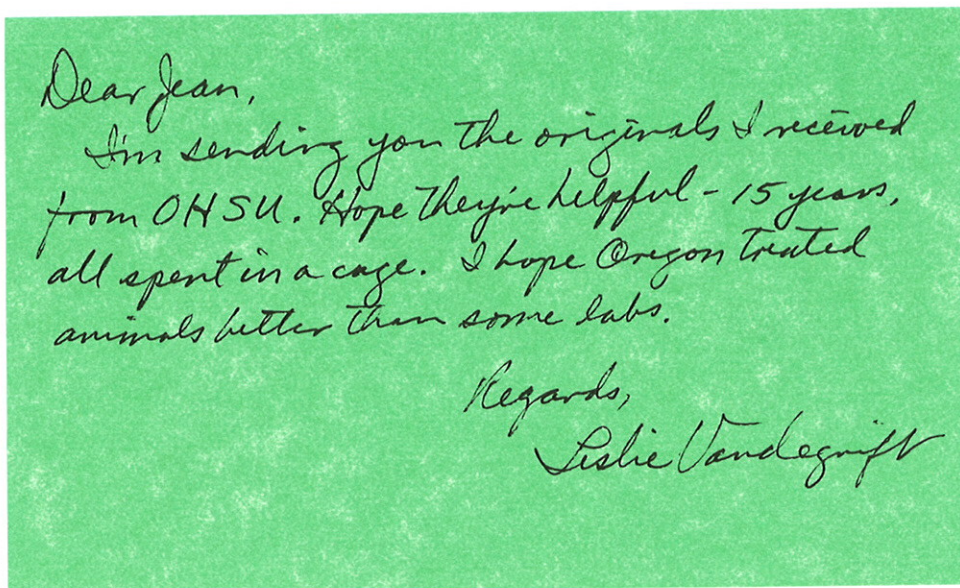 Dear Jean,
I'm sending you the originals I received
from OHSU. Hope they're helpful - 15 years,
all spent in a cage. I hope Oregon treated
animals better than some labs.
Regards,
Leslie Vandegrift